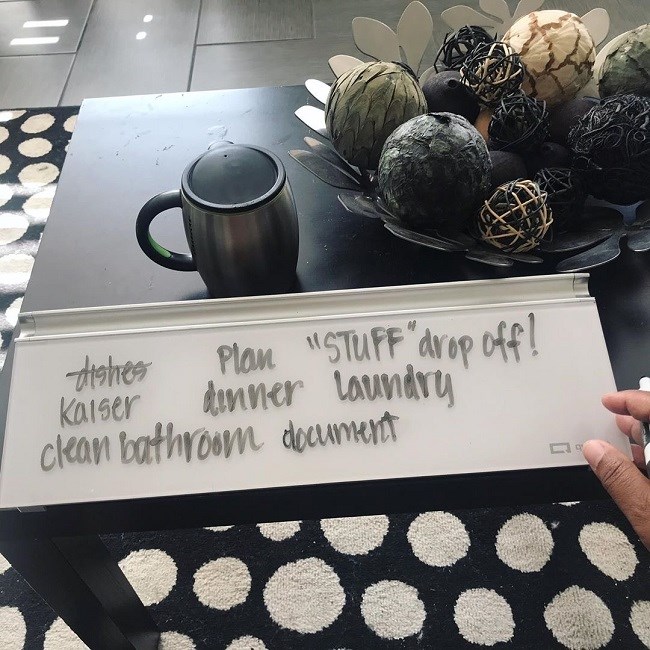 dishes Plan "STUFF" drop off!
Kaiser dinner laundry
clean bathroom document